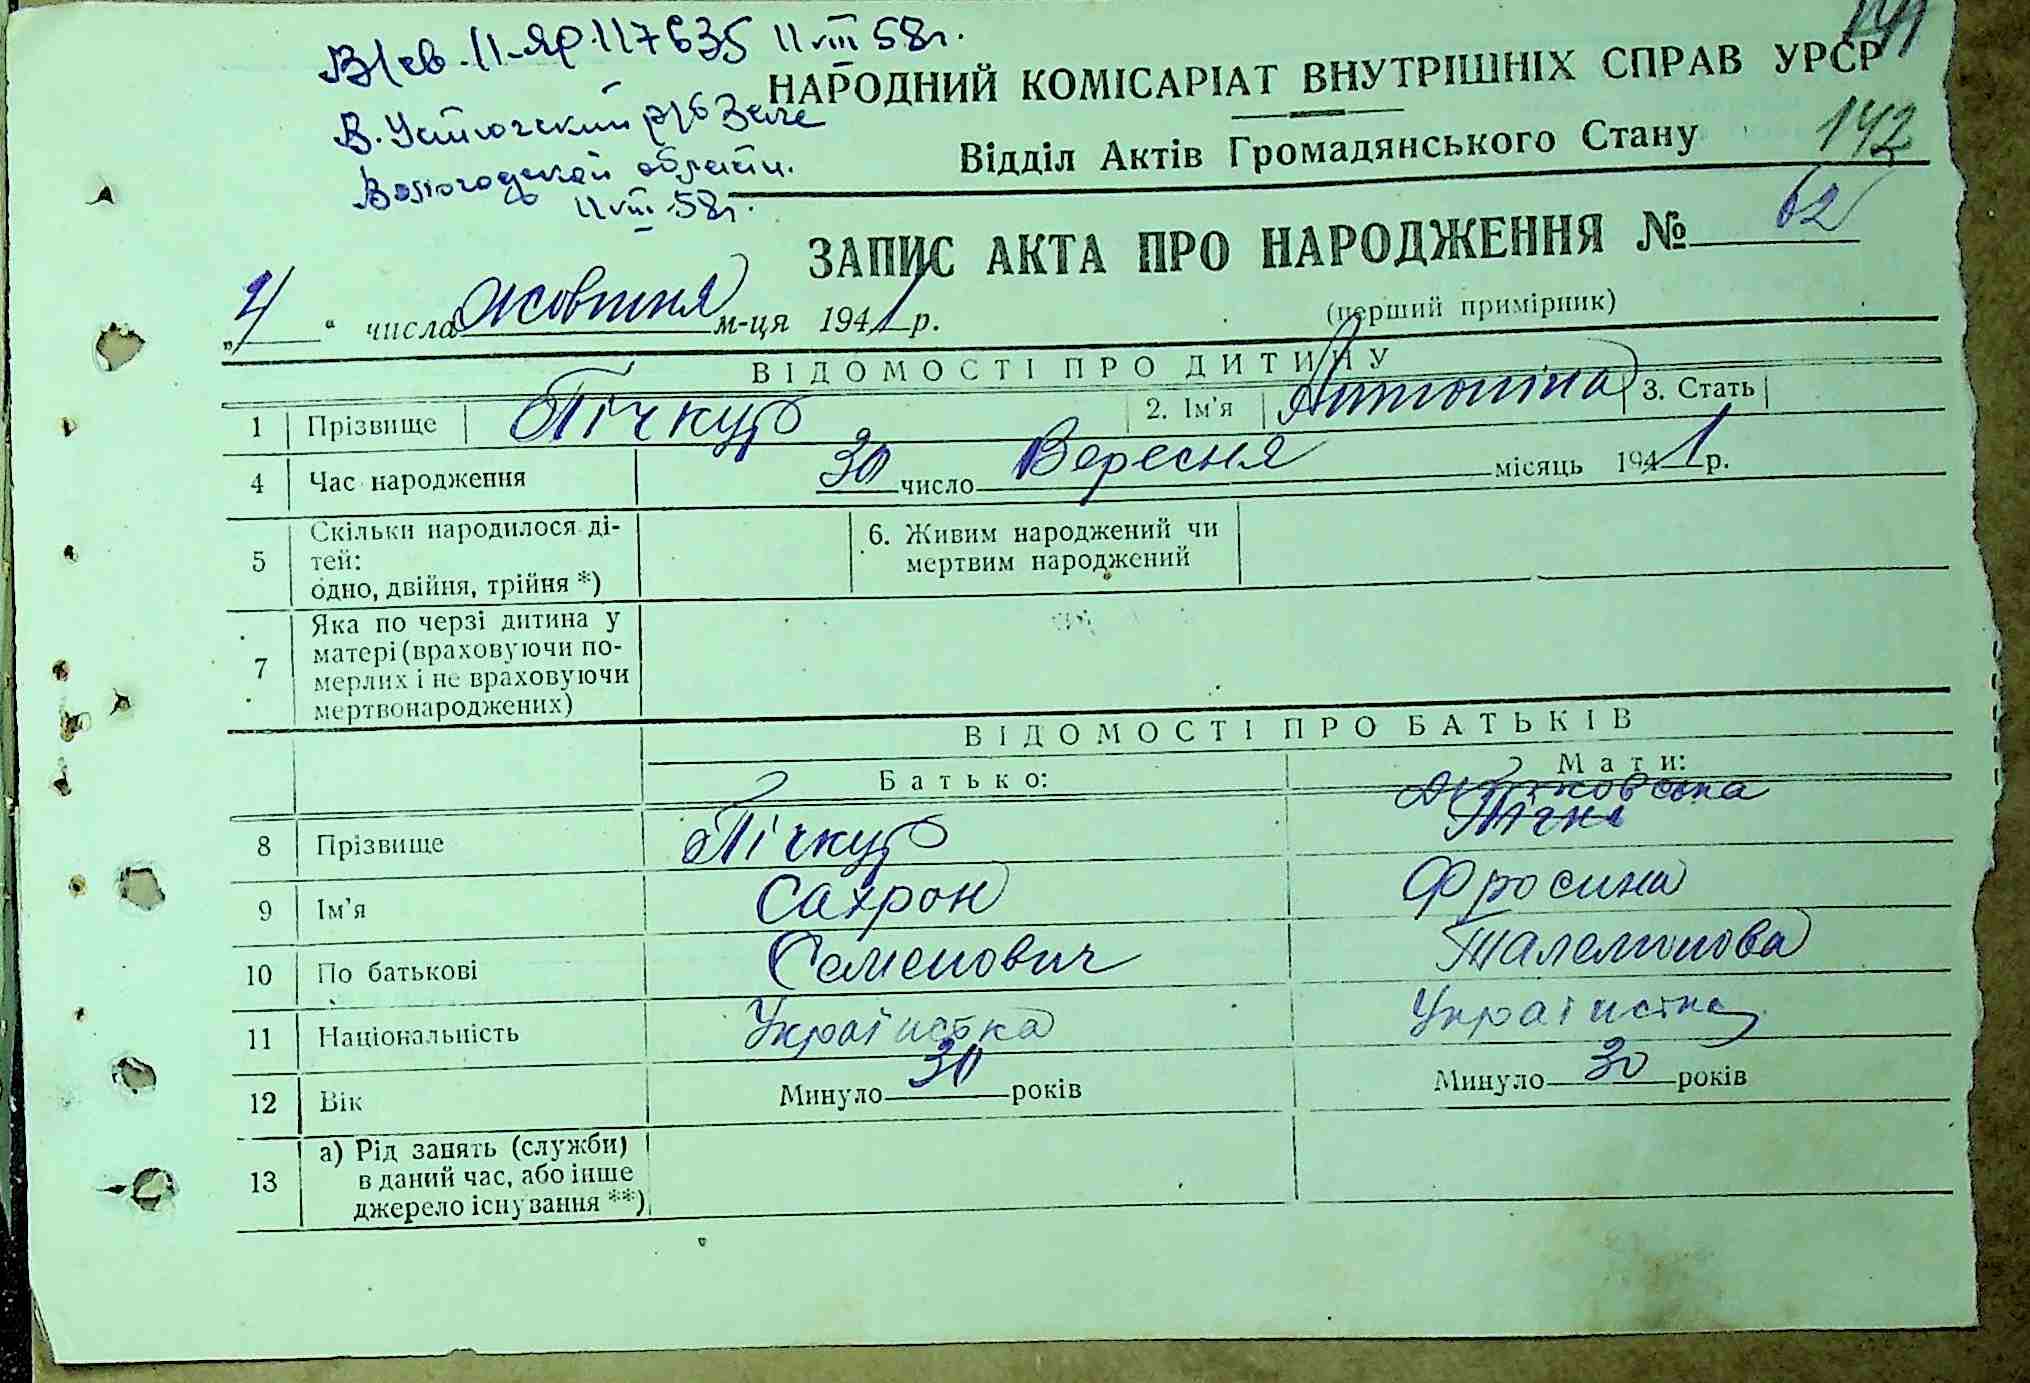 В/св. II-ЯР 117635 11 VIII 58г.
В. Устюгский р/б Загс
Вологодской области.
11 VIII 58г.
142
НАРОДНИЙ КОМІСАРІАТ ВНУТРІШНІХ СПРАВ УРСР
Відділ Актів Громадянського Стану
ЗАПИС АКТА ПРО НАРОДЖЕННЯ № 62
(перший примірник)
„4“ числа жовтня м-ця 1941 р.
ВІДОМОСТІ ПРО ДИТИНУ
1 Прізвище Пічкур 2. Ім'я Антоніна 3. Стать
4 Час народження 30 число Вересня місяць 1941 р.
5 Скільки народилося ді-
тей:
одно, двійня, трійня *)
6. Живим народжений чи
мертвим народжений
7 Яка по черзі дитина у
матері (враховуючи по-
мерлих і не враховуючи
мертвонароджених)
ВІДОМОСТІ ПРО БАТЬКІВ
Батько: Мати:
8 Прізвище Пічкур
9 Ім'я Сахрон Фросина
10 По батькові Семенович Талемонова
11 Національність Українка Українка
12 Вік Минуло 30 років Минуло 30 років
13 а) Рід занять (служби)
в даний час, або інше
джерело існування **)